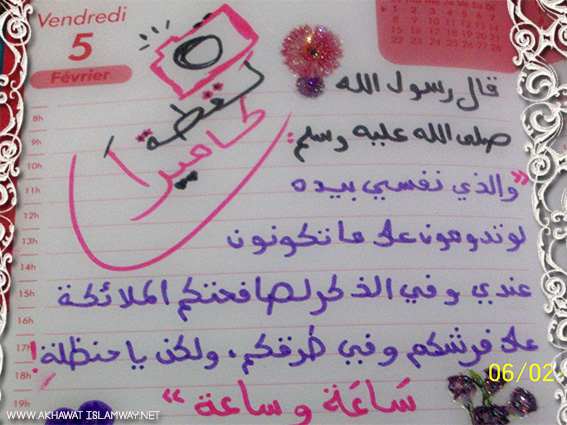 Vendredi
5
Février
لقطة
كاميرا
قال رسول الله
صلى الله عليه وسلم:
«والذي نفسي بيده
لو تدومون على ما تكونون
عندي وفي الذكر لصافحتكم الملائكة
على فرشكم وفي طرقكم، ولكن يا حنظلة!
سَاعَة وساعة»
8h
9h
10h
11h
12h
13h
14h
15h
16h
17h
18h
19h
06/02
WWW.AKHAWAT.ISLAMWAY.NET